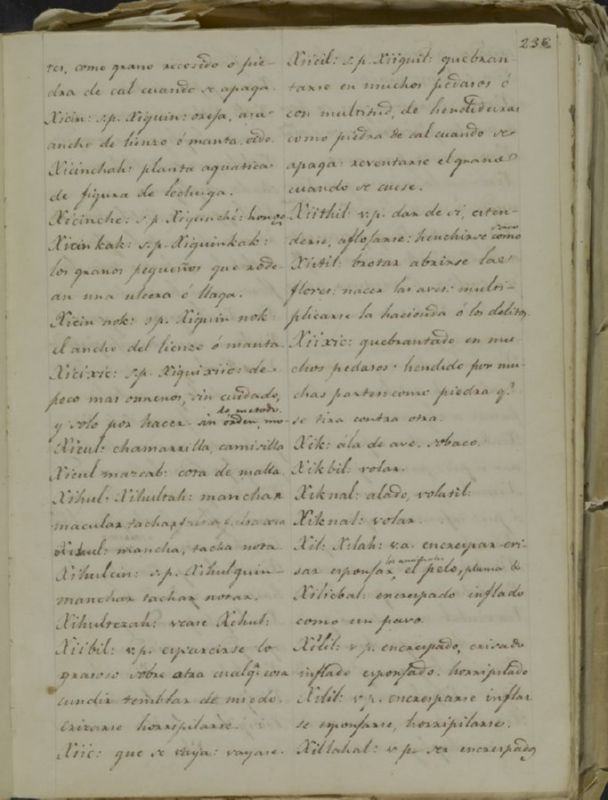 236
tes, como grano recosido ó pie-
dra de cal cuando se apaga.
Xicin: s.p. Xiquin: oreja, asa
ancho de lienzo ó manta, oido.
Xicinchah: planta aquatica
de figura de lechuga.
Xicinche: s.p. Xiquinché: hongo
Xicin kak: s.p. Xiquinkak:
los granos pequeños que rode-
an una ulcera ó llaga.
Xicin nok: s.p. Xiquin nok:
el ancho del lienzo ó manta.
Xicixic: s.p. Xiquixiic: de
poco mas omenos, sin cuidado,
y solo por hacer sin órden, ni
to metodo.
Xicul: chamarrilla, camisilla
Xicul mazcab: cota de malla.
Xihul: Xihultah: manchar
macular tachar
Xihul: mancha, tacha nota
Xihulcin: s.p. Xihulquin
manchar tachar notar.
Xihultezah: vease Xihul:
Xiibil: v.p. esparcirse lo
grasoso sobre otra cualq.ª cosa
cundir temblar de miedo.
erizarse horripilarse.
Xiic: que se vaya: vayase.
Xiicil: s.p. Xiiquil: quebran-
tarse en muchos pedasos ó
con multitud, de hendiduras
como piedra de cal cuando se
apaga: reventarse el grano
cuando se cuese.
Xiithil: v.p. dar de si, esten-
derse, aflojarse: henchirse como
Xietil: brotar abrirse las
flores: nacer las aves: multi-
plicarse la hacienda ó los delitos
Xiixic: quebrantado en mu-
chos pedasos: hendido por mu-
chas partes como piedra q.e
se tira contra otra.
Xik: ála de ave. sobaco.
Xikbil: volar.
Xiknal: alado, volatil:
Xiknal: volar.
Xil: Xilah: v.a. encrespar eri-
sar esponjar, el pelo, pluma &
Xiliebal: encrespado inflado
como un pavo.
Xilil: v p. encrespado, erisado
inflado esponjado. horripilado
Xilil: v.p. encresparse inflar
se esponjarse, horripilarse.
Xillahal: v.p. ser encrespado